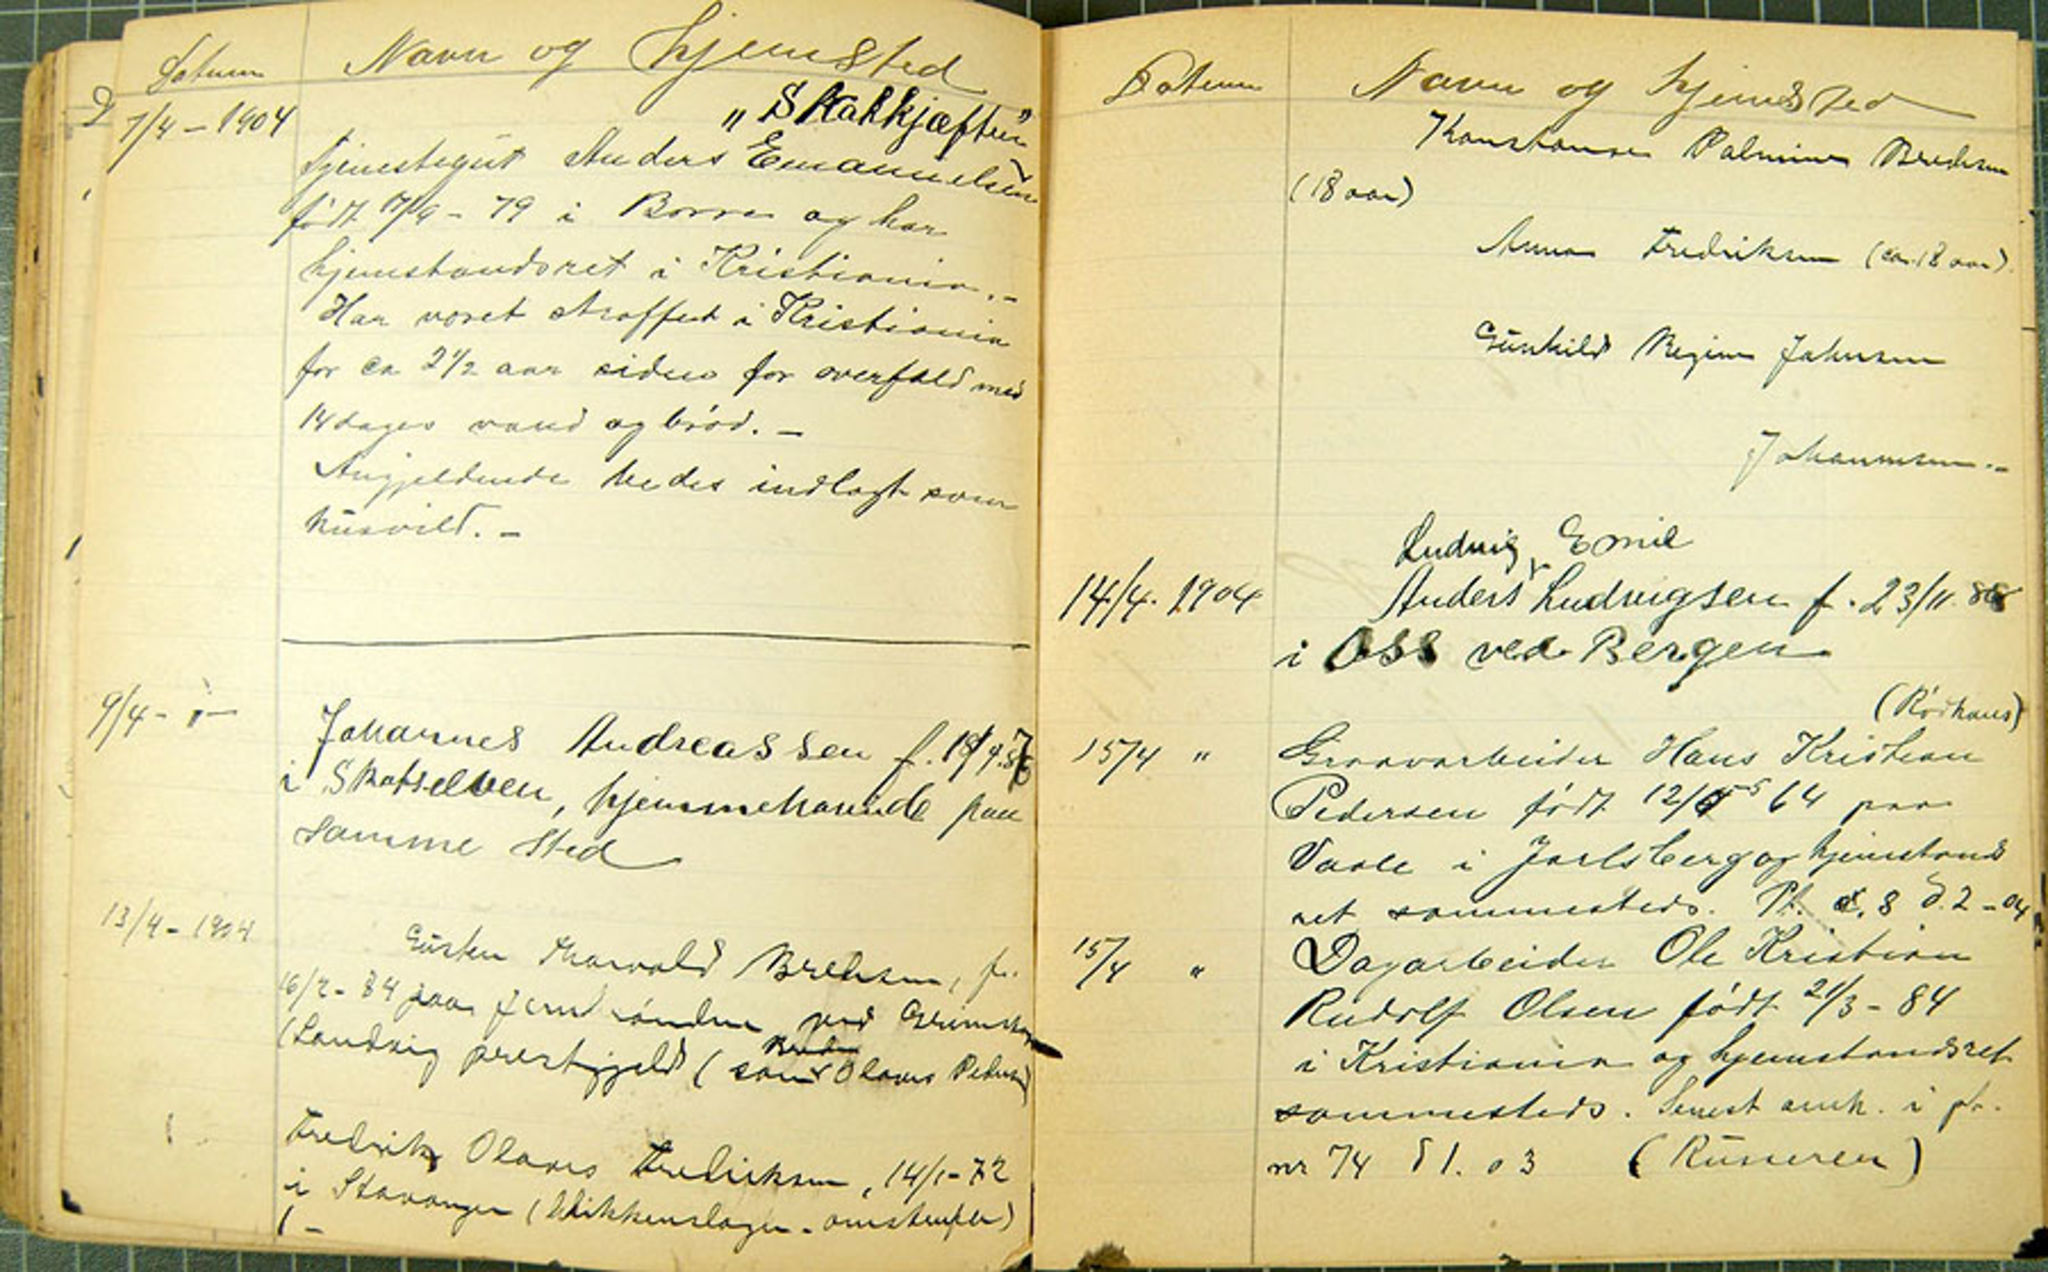 Datum Navn og hjemsted
7/4 - 1904 "Skakkjæften"
Tjenestegut Anders Emanuelsen
født 17/9 - 79 i Borre og har
hjemstandsret i Kristiania. -
Har været straffet i Kristiania
for ca 2 1/2 aar siden for overfald med
14 dages vand og brød. -
Angjeldende bedes indlagt som
husvild. -
9/4 - " - Johannes Andreassen f.
i Skotselven, hjemmehørende paa
samme Sted
13/4 - 1904 Gusten Thorvald Bredesen, f.
16/2 - 84 paa ved Grimstad
(Landvig prestegjeld (som Olaves Pedersen)
Fredrik Olaves Fredriksen, 14/1 - 72
i Stavanger (Blikkenslager - omstreifer)
( -
Datum Navn og hjemsted
Konstanse Palmine Bredesen
(18 aar)
Anna Fredriksen (ca. 18 aar).
Gunhild Regine Johnsen
Johannesen. -
Ludvig Emil
14/4. 1904 Anders Ludvigsen f. 23/11. 
i Oss ved Bergen
(Rødhans)
15/4 " Gravarbeider Hans Kristian
Pedersen født 12/5 64 paa
Vaale i Jarlsberg og hjemstands
ret sammesteds. Pt. 8 d. 2 - 04
15/4 " Dagarbeider Ole Kristian
Rudolf Olsen født 21/3 - 84
i Kristiania og hjemstandsret
sammesteds. Senest anh. i pr.
nr 74 d 1. 03 (Russeren)